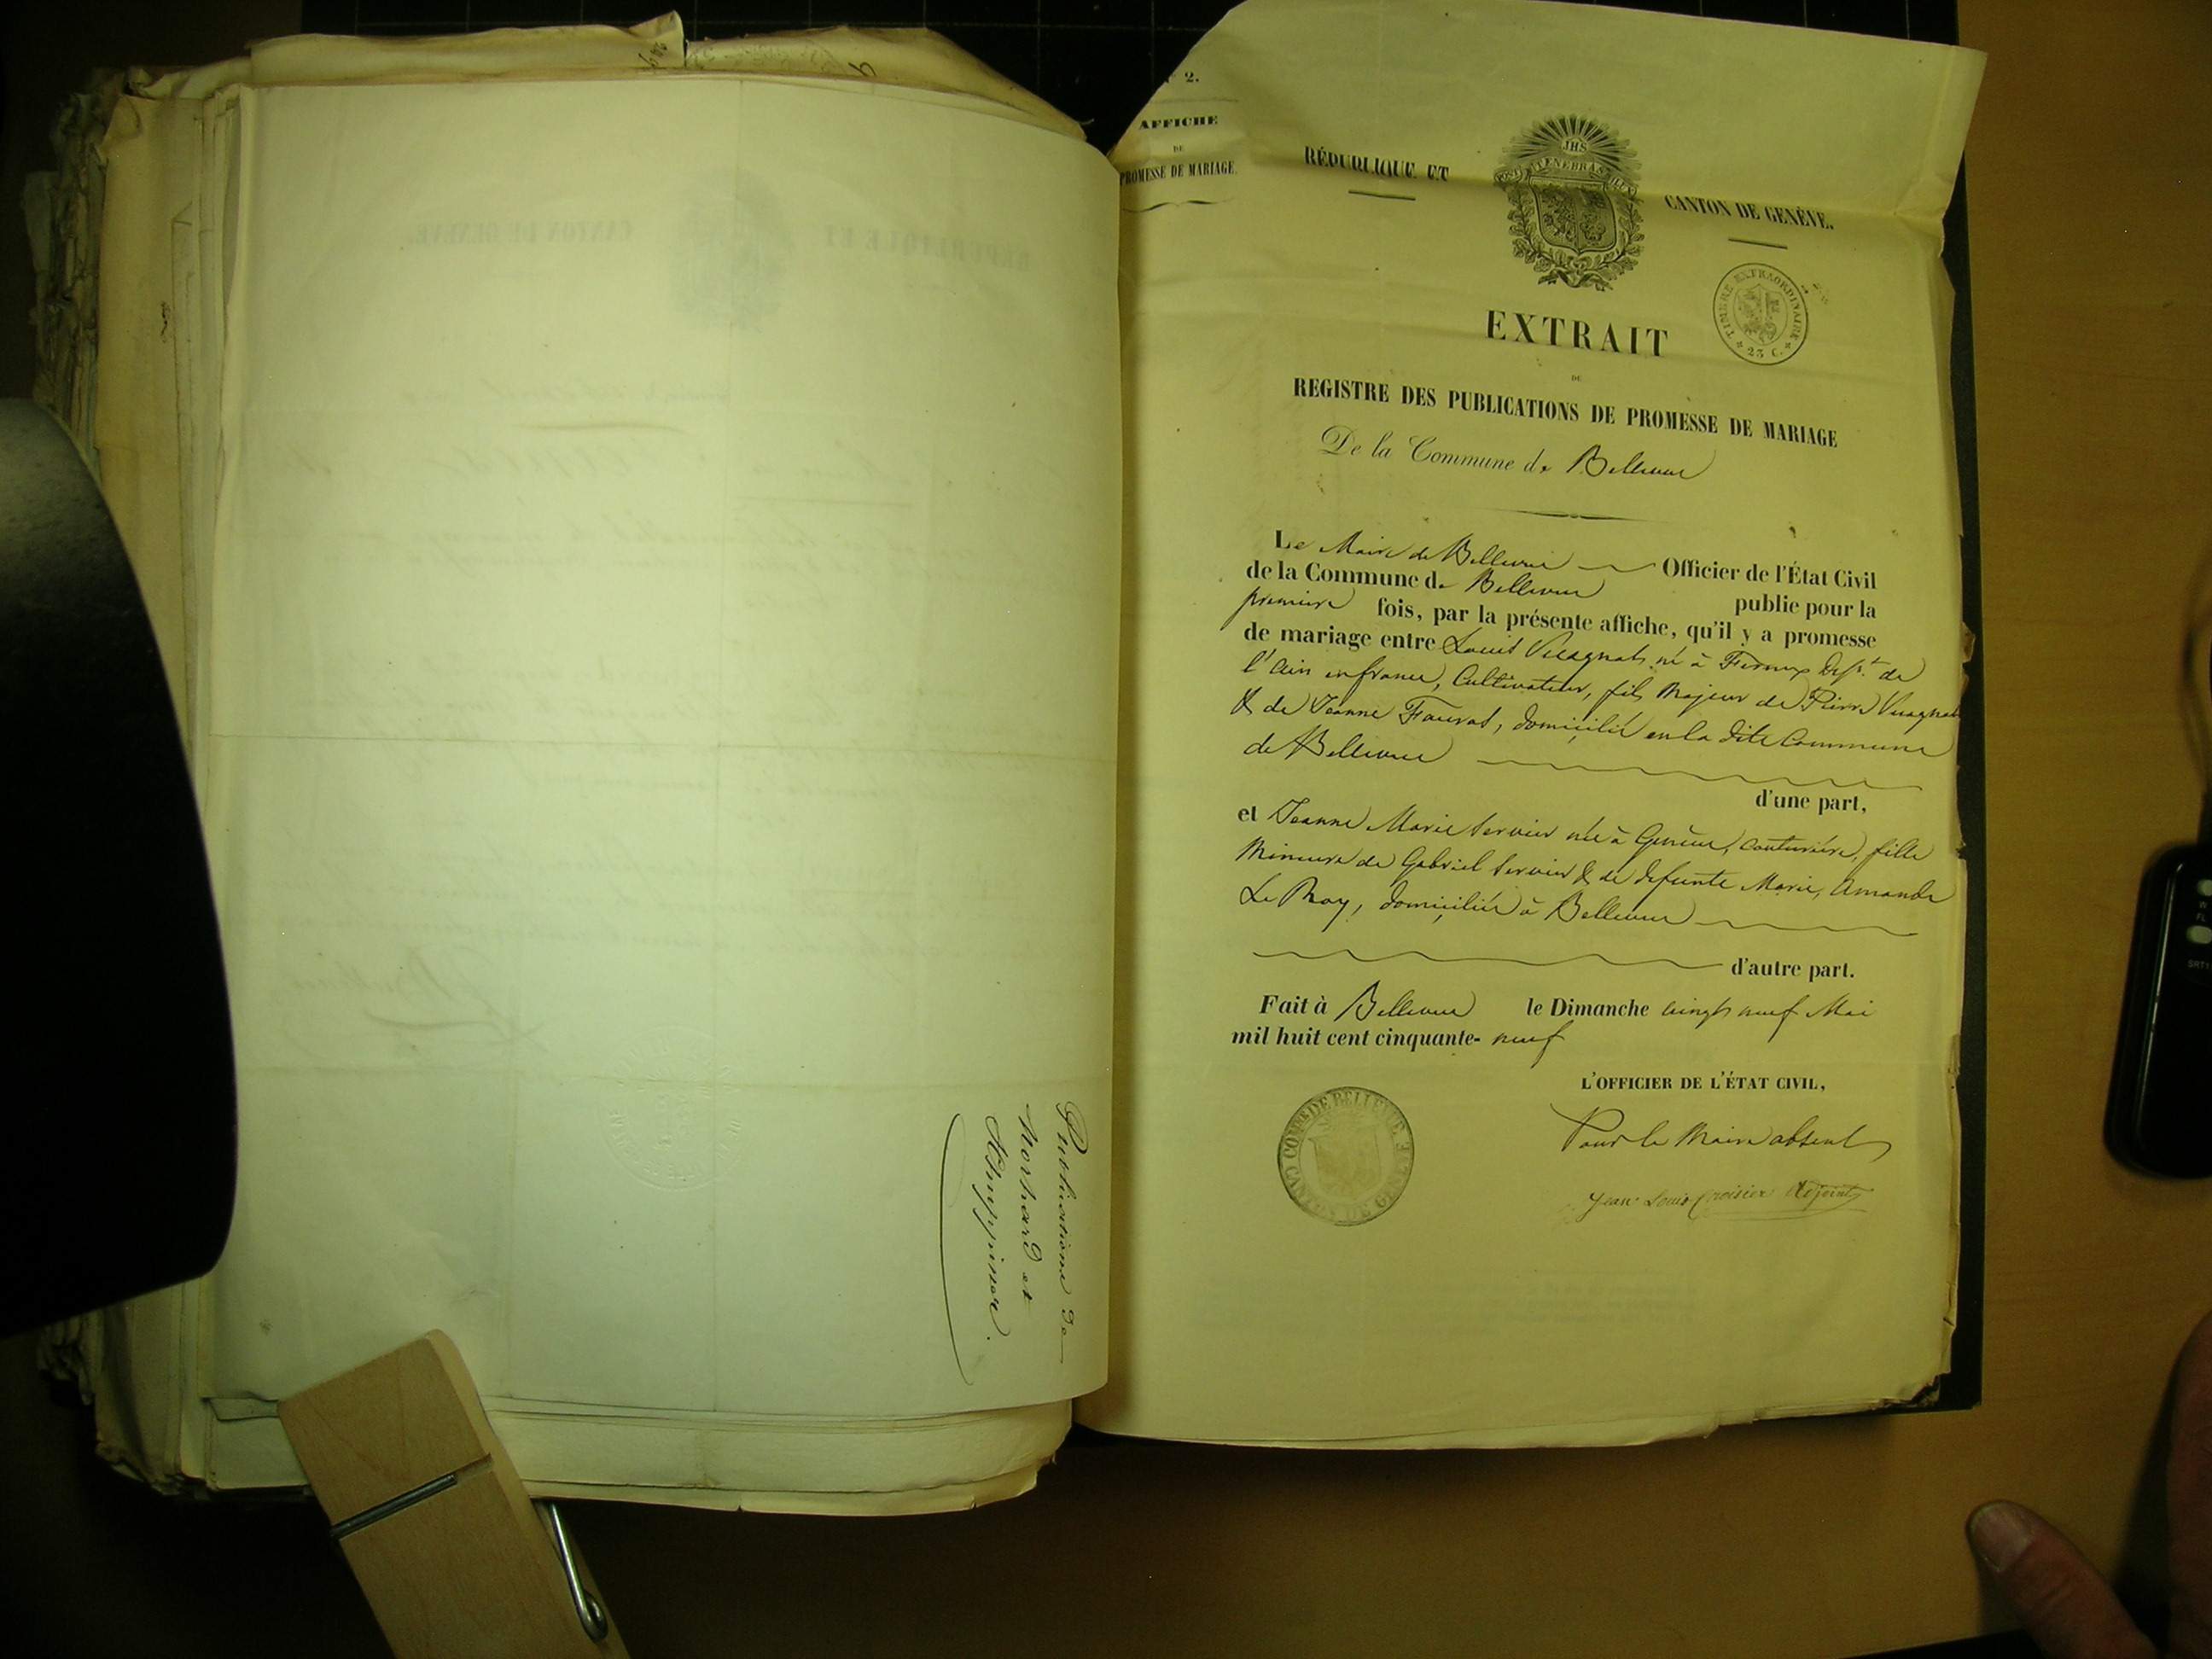 Publications de
Morhard et
2.
AFFICHE
DE
PROMESSE DE MARIAGE.
RÉPUBLIQUE ET
CANTON DE GENÈVE.
JHS
POST TENEBRAS LUX
TIMBRE EXTRAORDINAIRE
* 25 C. *
EXTRAIT
DE
REGISTRE DES PUBLICATIONS DE PROMESSE DE MARIAGE
De la Commune de Bellevue
Le Maire de Bellevue Officier de l'État Civil
de la Commune de Bellevue publie pour la
première fois, par la présente affiche, qu'il y a promesse
de mariage entre Louis né à Fernex Dept. de
l'Ain en france, Cultivateur, fils Majeur de Pierre
& de Jeanne Fauvat, domicilié en la dite Commune
de Bellevue
d'une part,
et Jeanne Marie Servier née à Genève, couturière, fille
Mineure de Gabriel Servier & de defunte Marie, Amande
Le Roy, domiciliée à Bellevue
d'autre part.
Fait à Bellevue le Dimanche vingt neuf Mai
mil huit cent cinquante- neuf
L'OFFICIER DE L'ÉTAT CIVIL,
COMNE DE BELLEVUE
CANTON DE GENÈVE
Pour le Maire absent
Jean Louis Croisier Adjoint